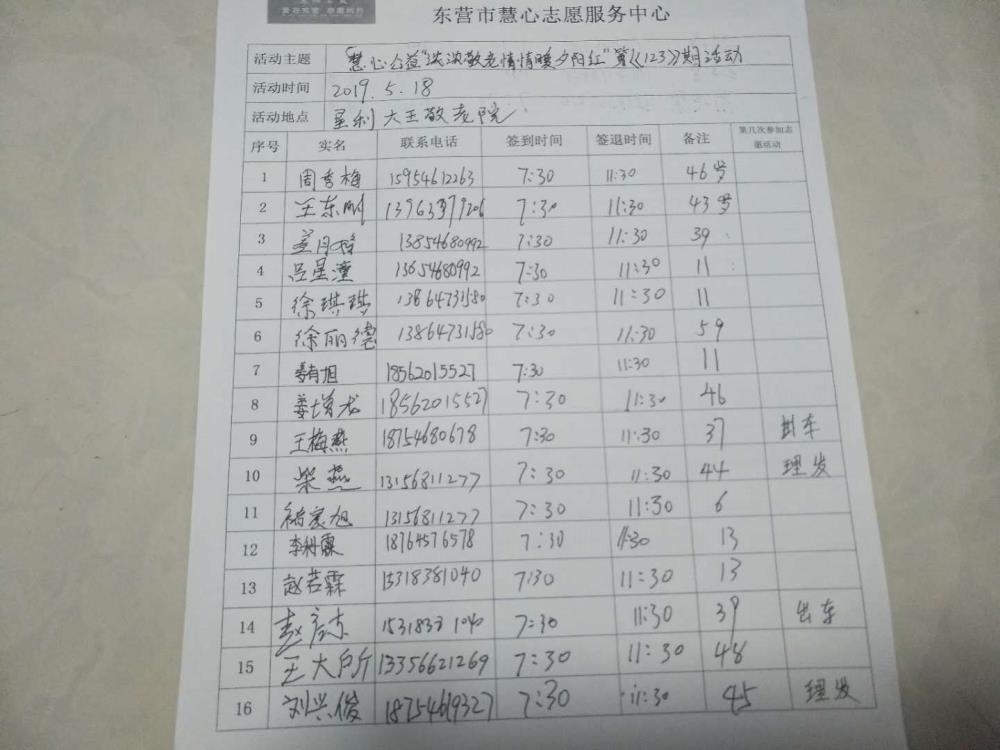 东营市慧心志愿服务中心
活动主题 "慧心公益"浓浓敬老情情暖夕阳红"第《123》期活动
活动时间 2019.5.18
活动地点 垦利大王敬老院
序号 实名 联系电话 签到时间 签退时间 备注 第几次参加志愿活动
1 周秀梅 15954612263 7:30 11:30 46岁
2 王东刚 7:30 11:30 43岁
3 13854680992 7:30 11:30 39
4 吕星潼 13654680992 7:30 11:30 11
5 徐琪琪 13864731580 7:30 11:30 11
6 徐丽德 13864731580 7:30 11:30 59
7 姜有旭 18562015527 7:30 11:30 11
8 姜增龙 18562015527 7:30 11:30 46
9 王梅燕 18754680678 7:30 11:30 37 出车
10 柴燕 13156811277 7:30 11:30 44 理发
11 旭 13156811277 7:30 11:30 6
12 李科霖 18764576578 7:30 11:30 13
13 赵若霖 15318381040 7:30 11:30 13
14 赵彦东 7:30 11:30 39 出车
15 王大户斤 13356621269 7:30 11:30 48
16 刘兴俊 18754619327 7:30 11:30 45 理发